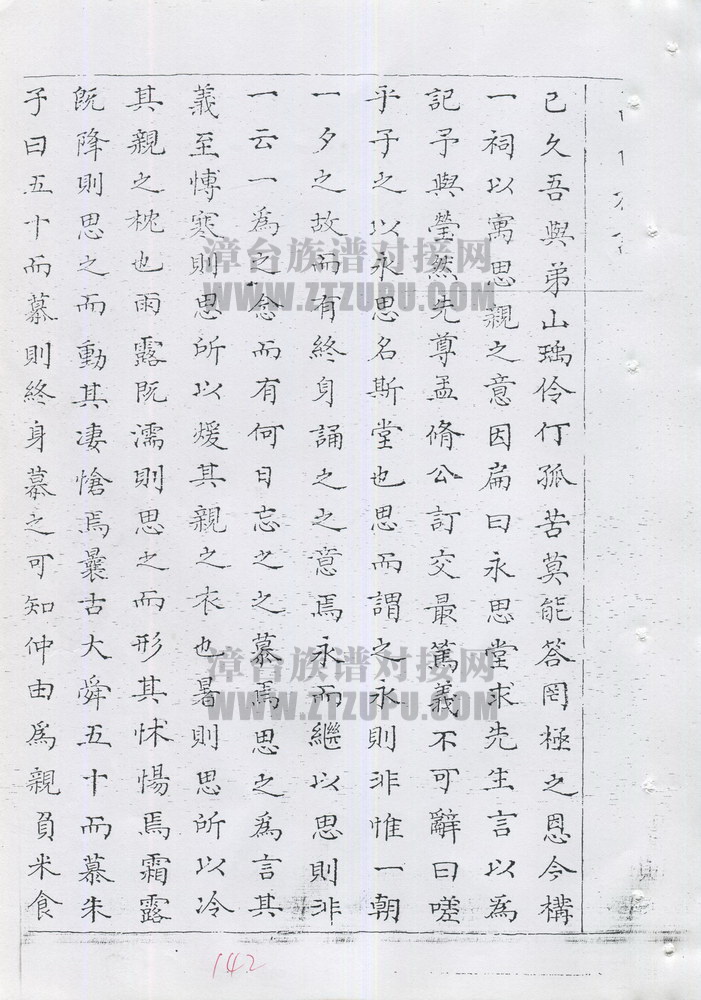 己久吾與弟山瑀伶仃孤苦莫能答罔極之恩今構
一祠以寓思親之意因扁曰永思堂求先生言以為
記予與瑩然先尊孟脩公訂交最篤義不可辭曰嗟
乎子之以永思名斯堂也思而謂之永則非惟一朝
一夕之故而有終身誦之之意焉永而繼以思則非
一云一為之念而有何日忘之之慕焉思之為言其
義至愽寒則思所以煖其親之衣也暑則思所以冷
其親之枕也雨露既濡則思之而形其怵惕焉霜露
既降則思之而動其凄愴焉曩古大舜五十而慕朱
子曰五十而慕則終身慕之可知仲由為親負米食
漳台族谱对接网
WWW.ZTZUPU.COM
漳台族谱对接网
WWW.ZTZUPU.COM
142